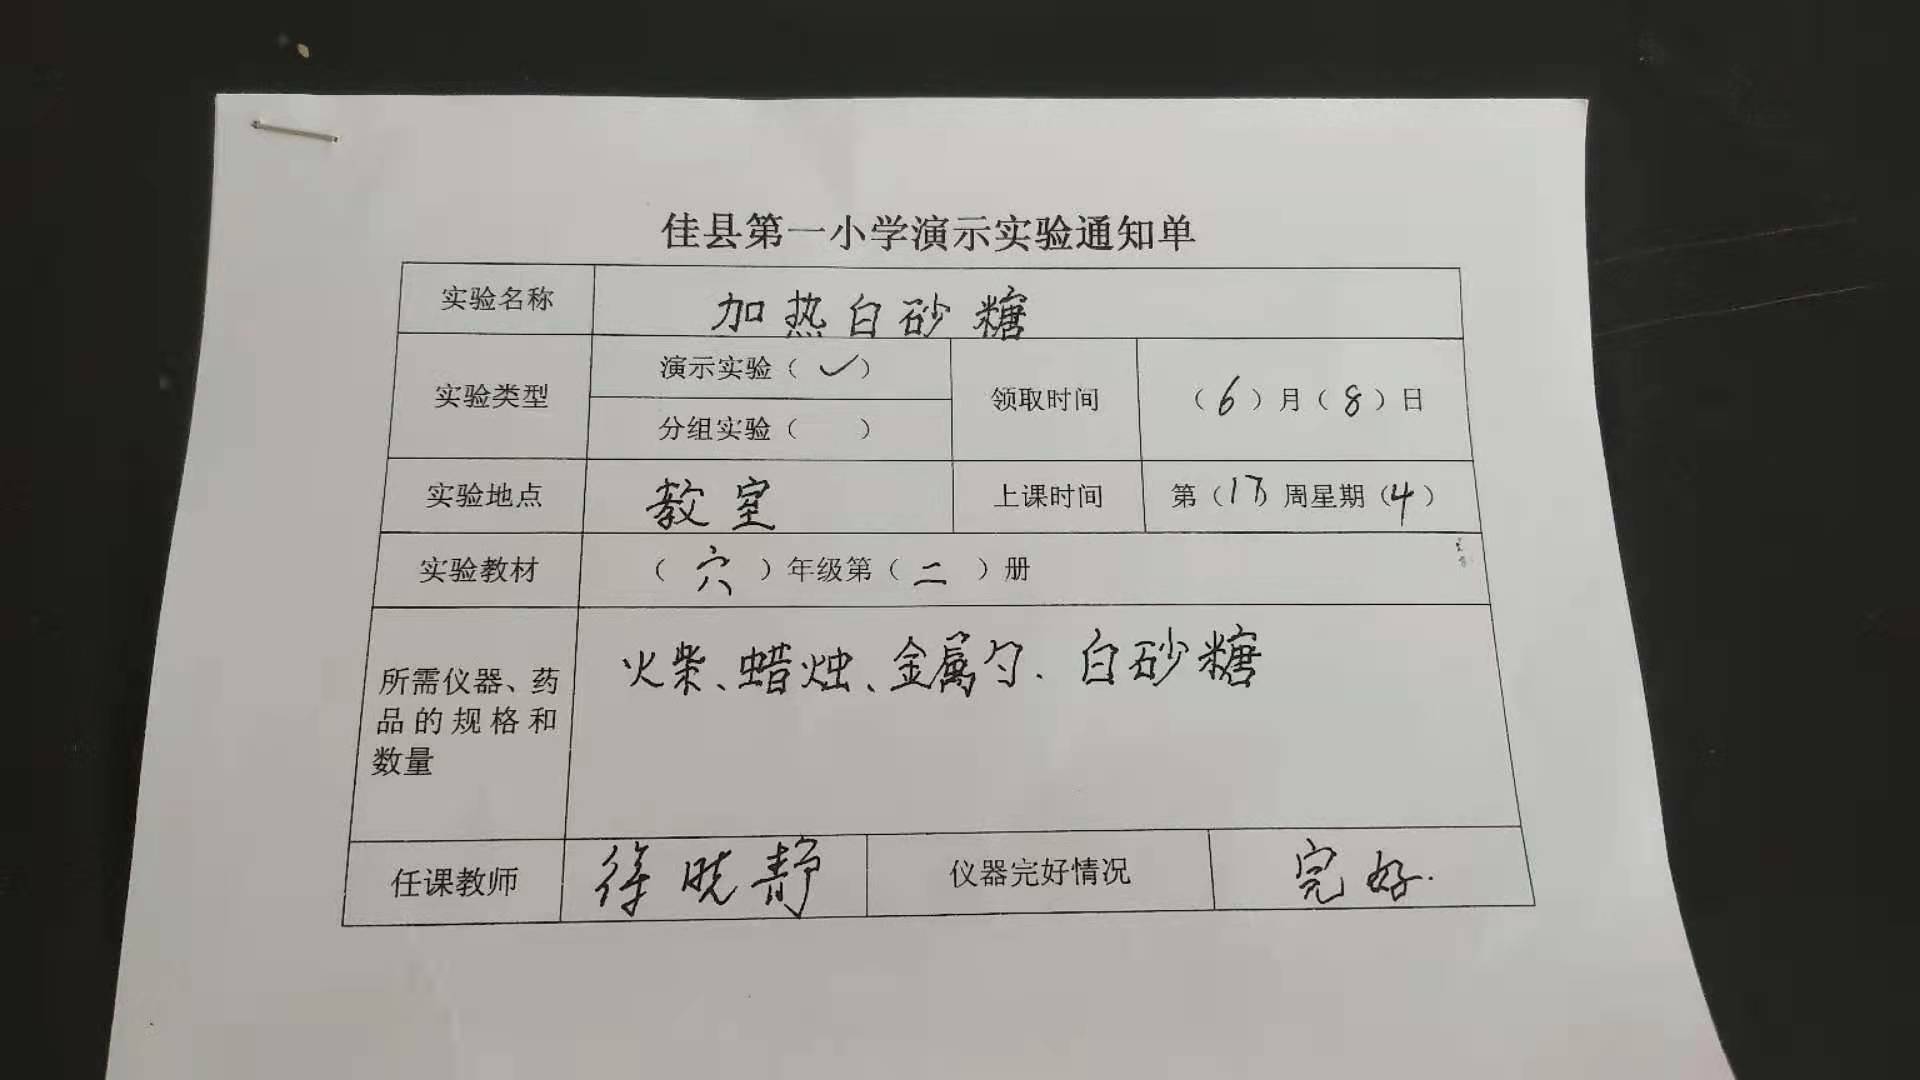 佳县第一小学演示实验通知单
实验名称 加热白砂糖
实验类型 演示实验（✓） 领取时间 （6）月（8）日
分组实验（ ）
实验地点 教室 上课时间 第（17）周星期（4）
实验教材 （六）年级第（二）册
所需仪器、药
品的规格和
数量
火柴、蜡烛、金属勺.白砂糖
任课教师 徐晓静 仪器完好情况 完好.